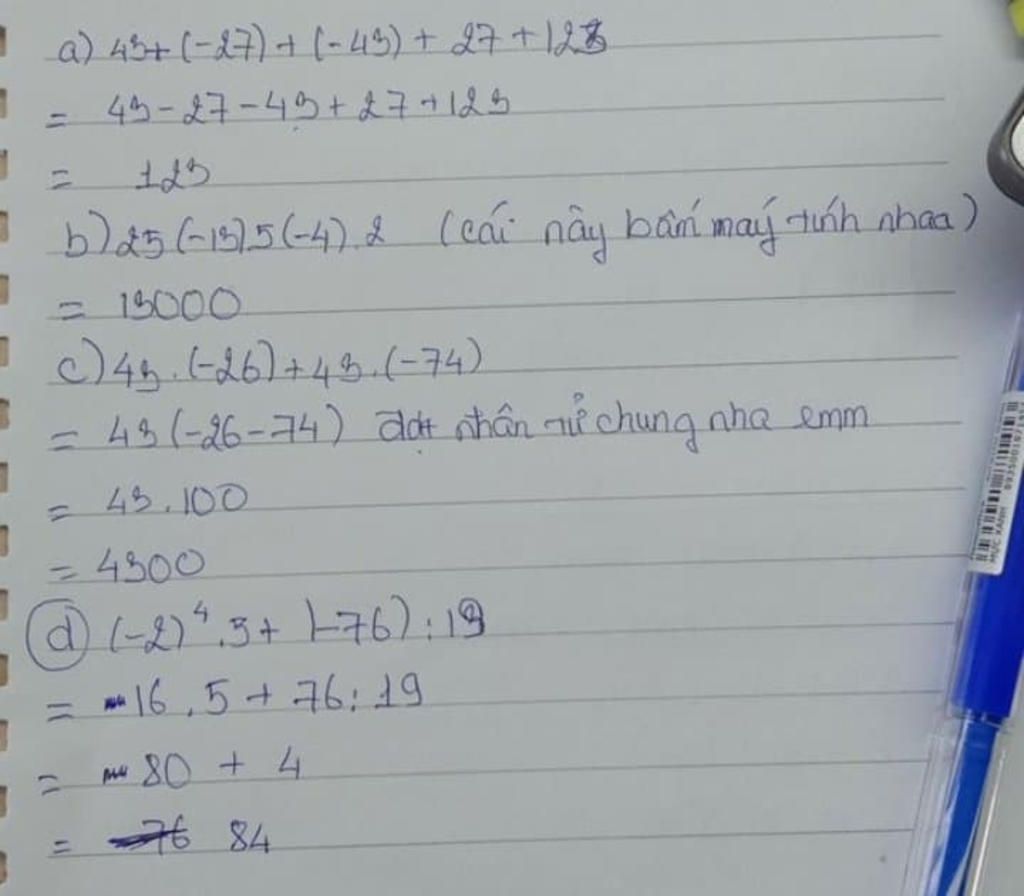 a) 43+(-27)+(-43)+27+123
= 43-27-43+27+123
= 123
b) 25(-13)5(-4).2 (cái này bấm máy tính nhaa)
= 13000
c) 43.(-26)+43.(-74)
= 43(-26-74) đặt nhân tử chung nha emm
= 43.100
= 4300
d) (-2)⁴.5+|-76):19
= 16.5+76:19
= 80+4
= 84
MỰC XANH